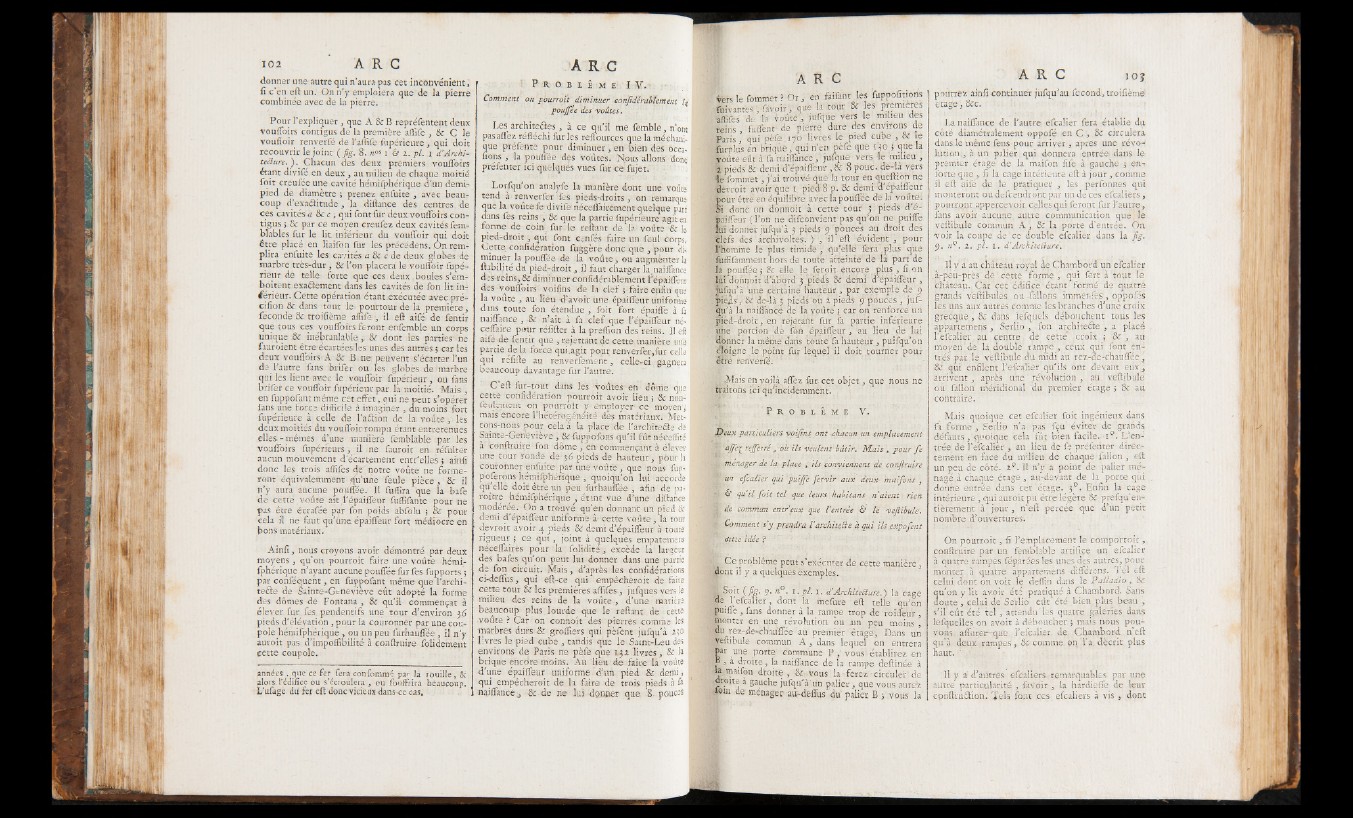 102 A R C
donner une autre qui n'aura pas cet inconvénient,
si c'en est un. On n'y emploiera que de la pierre
combinée avec de la pierre.
Pour l'expliquer, que A & B représentent deux
voussoirs contigus de la première assise, & C le
voussoir renversé de l'assise supérieure, qui doit
recouvrir le joint (fig. 8. nos 1 & 2. pl. 1 d'Archi-
tecture.). Chacun des deux premiers voussoirs
étant divisé en deux, au milieu de chaque moitié
soit creusée une cavité hémisphérique d'un demi-
pied de diamètre; prenez ensuite, avec beau-
coup d'exactitude, la distance des centres de
ces cavités a & c, qui sont sur deux voussoirs con-
tigus; & par ce moyen creusez deux cavités sem-
blables sur le lit intérieur du voussoir qui doit
être placé en liaison sur les précédens. On rem-
plira ensuite les cavités a & c de deux globes de
marbre très-dur, & l'on placera le voussoir supé-
rieur de telle sorte que ces deux boules s'em-
boitent exactement dans les cavités de son lit in-
férieur. Cette opération étant exécutée avec pré-
cision & dans tout le pourtour de la première,
seconde & troisième assise, il est aisé de sentir
que tous ces voussoirs feront ensemble un corps
unique & inébranlable, & dont les parties ne
sauroient être écartées les unes des autres; car les
deux voussoirs A & B ne peuvent s'écarter l'un
de l'autre sans briser ou les globes de marbre
qui les lient avec le voussoir supérieur, ou sans
briser ce voussoir supérieur par la moitié. Mais,
en supposant même cet effet, qui ne peut s'opérer
sans une force difficile à imaginer, du moins fort
supérieure à celle de l'action de la voûte, les
deux moitiés du voussoir rompu étant entretenues
elles-mêmes d'une manière semblable par les
voussoirs supérieurs, il ne sauroit en résulter
aucun mouvement d'écartement entr'elles; ainsi
donc les trois assises de notre voûte ne forme-
ront équivalemment qu'une seule pièce, & il
n'y aura aucune poussée. Il suffira que la base
de cette voûte ait l'épaisseur suffisante pour ne
pas être écrasée par son poids absolu; & pour
cela il ne faut qu'une épaisseur fort médiocre en
bons matériaux.
Ainsi, nous croyons avoir démontré par deux
moyens, qu'on pourroit faire une voûte hémi-
sphérique n'ayant aucune poussée sur ses supports;
par conséquent, en supposant même que l'archi-
tecte de Sainte-Geneviève eût adopté la forme
des dômes de Fontana, & qu'il commençât à
élever sur ses pendentifs une tour d'environ 36
pieds d'élévation, pour la couronner par une cou-
pole hémisphérique, ou un peu surhaussée, il n'y
auroit pas d'impossibilité à construire solidement
cette coupole.
années, que ce fer sera consommé par la rouille, &
alors l'édifice ou s'écroulera, ou souffrira beaucoup.
L'usage du fer est donc vicieux dans ce cas.
A R C
PROBLÈME IV.
Comment on pourroit diminuer considérablement la
poussée des voûtes.
Les architectes, à ce qu'il me semble, n'ont
pas assez réfléchi sur les ressources que la méchani-
que présente pour diminuer, en bien des occa-
sions, la poussée des voûtes. Nous allons donc
présenter ici quelques vues sur ce sujet.
Lorsqu'on analyse la manière dont une voûte
tend à renverser ses pieds-droits, on remarque
que la voûte se divise nécessairement quelque part
dans ses reins, & que la partie supérieure agit en
forme de coin sur le restant de la voûte & le
pied-droit, qui sont censés faire un seul corps.
Cette considération suggère donc que, pour di-
minuer la poussée de la voûte, ou augmenter la
stabilité du pied-droit, il faut charger la naissance
des reins, & diminuer considérablement l'épaisseur
des voussoirs voisins de la clef; faire enfin que
la voûte, au lieu d'avoir une épaisseur uniforme
dans toute son étendue, soit fort épaisse à sa
naissance, & n'ait à sa clef que l'épaisseur né-
cessaire pour résister à la pression des reins. Il est
aisé de sentir que, rejettant de cette manière une
partie de la force qui agit pour renverser, sur celle
qui résiste au renversement, celle-ci gagnera
beaucoup davantage sur l'autre.
C'est sur-tout dans les voûtes en dôme que
cette considération pourroit avoir lieu; & non-
seulement on pourroit y employer ce moyen,
mais encore l'hétérogénéité des matériaux. Met-
tons-nous pour cela à la place de l'architecte de
Sainte-Geneviève, & supposons qu'il fût nécessité
à construire son dôme, en commençant à élever
une tour ronde de 36 pieds de hauteur, pour la
couronner ensuite par une voûte, que nous sup-
poserons hémisphérique, quoiqu'on lui accorde
qu'elle doit être un peu surhaussée, afin de pa-
roître hémisphérique, étant vue d'une distance
modérée. On a trouvé qu'en donnant un pied &
demi d'épaisseur uniforme à cette voûte, la tour
devroit avoir 4 pieds & demi d'épaisseur à toute
rigueur; ce qui, joint à quelques empatemens
nécessaires pour la solidité, excède la largeur
des bases qu'on peut lui donner dans une partie
de son circuit. Mais, d'après les considérations
ci-dessus, qui est-ce qui empêcheroit de faire
cette tour & les premières assises, jusques vers le
milieu des reins de la voûte, d'une matière
beaucoup plus lourde que le restant de cette
voûte? Car on connoît des pierres comme les
marbres durs & grossiers qui pèsent jusqu'à 230
livres le pied cube, tandis que le Saint-Leu des
environs de Paris ne pèse que 132 livres, & la
brique encore moins. Au lieu de faire la voûte
d'une épaisseur uniforme d'un pied & demi,
qui empêcheroit de la faire de trois pieds à sa
naissance, & de ne lui donner que 8 pouces
A R C
vers le sommet? Or, en faisant les suppositions
suivantes, savoir, que la tour & les premières
assises de la voûte, jusque vers le milieu des
reins, fussent de pierre dure des environs de
Paris, qui pèse 170 livres le pied cube, & le
surplus en brique, qui n'en pèse que 130; que la
voûte eût à sa naissance, jusque vers le milieu,
2 pieds & demi d'épaisseur, & 8 pouc. de-là vers
le sommet, j'ai trouvé que la tour en question ne
devroit avoir que 1 pied 8 p. & demi d'épaisseur
pour être en équilibre avec la poussée de la voûte.
Si donc on donnoit à cette tour 3 pieds d'é-
paisseur (l'on ne disconvient pas qu'on ne puisse
lui donner jusqu'à 3 pieds 9 pouces au droit des
clefs des archivoltes.), il est évident, pour
l'homme le plus timide, qu'elle sera plus que
suffisamment hors de toute atteinte de la part de
la poussée; & elle le seroit encore plus, si on
lui donnoit d'abord 3 pieds & demi d'épaisseur,
jusqu'à une certaine hauteur, par exemple de 9
pieds, & de-là 3 pieds ou 2 pieds 9 pouces, jus-
qu'à la naissance de la voûte; car on renforce un
pied-droit, en rejetant sur sa partie inférieure
une portion de son épaisseur, au lieu de lui
donner la même dans toute sa hauteur, puisqu'on
éloigne le point sur lequel il doit tourner pour
être renversé.
Mais en voilà assez sur cet objet, que nous ne
traitons ici qu'incidemment.
PROBLÈME V.
Deux particuliers voisins ont chacun un emplacement
assez resserré, où ils veulent bâtir. Mais, pour se
ménager de la place, ils conviennent de construire
un escalier qui puisse servir aux deux maisons,
& qu'il soit tel que leurs habitans n'aient rien
de commun entr'eux que l'entrée & le vestibule.
Comment s'y prendra l'architecte à qui ils exposent
cette idée?
Ce problême peut s'exécuter de cette manière,
dont il y a quelques exemples.
Soit (fig. 9. n°. 1. pl. 1. d'Architecture.) la cage
de l'escalier, dont la mesure est telle qu'on
puisse, sans donner à la rampe trop de roideur,
monter en une révolution ou un peu moins,
du rez-de-chaussée au premier étage. Dans un
vestibule commun A, dans lequel on entrera
par une porte commune P, vous établirez en
B, à droite, la naissance de la rampe destinée à
la maison droite, & vous la ferez circuler de
droite à gauche jusqu'à un palier, que vous aurez
soin de ménager au-dessus du palier B; vous la
A R C 103
pourrez ainsi continuer jusqu'au second, troisième
étage, &c.
La naissance de l'autre escalier sera établie du
côté diamétralement opposé en C, & circulera
dans le même sens pour arriver, après une révo-
lution, à un palier qui donnera entrée dans le
premier étage de la maison sise à gauche; en-
sorte que, si la cage intérieure est à jour, comme
il est aisé de le pratiquer, les personnes qui
monteront ou descendront par un de ces escaliers,
pourront appercevoir celles qui seront sur l'autre,
sans avoir aucune autre communication que le
vestibule commun A, & la porte d'entrée. On
voit la coupe de ce double escalier dans la fig.
9. n°. 2. pl. 1. d'Architecture.
Il y a au château royal de Chambord un escalier
à-peu-près de cette forme, qui sert à tout le
château. Car cet édifice étant formé de quatre
grands vestibules ou sallons immenses, opposés
les uns aux autres comme les branches d'une croix
grecque, & dans lesquels débouchent tous les
appartemens, Serlio, son architecte, a placé
l'escalier au centre de cette croix; & , au
moyen de la double rampe, ceux qui sont en-
trés par le vestibule du midi au rez-de-chaussée,
& qui enfilent l'escalier qu'ils ont devant eux,
arrivent, après une révolution, au vestibule
ou sallon méridional du premier étage; & au
contraire.
Mais quoique cet escalier soit ingénieux dans
sa forme, Serlio n'a pas sçu éviter de grands
défauts, quoique cela fût bien facile. 1°. L'en-
trée de l'escalier, au lieu de se présenter direc-
tement en face du milieu de chaque sallon, est
un peu de côté. 2°. Il n'y a point de palier mé-
nagé à chaque étage, au-devant de la porte qui
donne entrée dans cet étage. 3°. Enfin la cage
intérieure, qui auroit pu être légère & presqu'en-
tièrement à jour, n'est percée que d'un petit
nombre d'ouvertures.
On pourroit, si l'emplacement le comportoit,
construire par un semblable artifice un escalier
à quatre rampes séparées les unes des autres, pour
monter à quatre appartemens différens. Tel est
celui dont on voit le dessin dans le Palladio, &
qu'on y lit avoir été pratiqué à Chambord. Sans
doute, celui de Serlio eût été bien plus beau,
s'il eût été tel, attendu les quatre galeries dans
lesquelles on avoit à déboucher; mais nous pou-
vons assurer que l'escalier de Chambord n'est
qu'à deux rampes, & comme on l'a décrit plus
haut.
Il y a d'autres escaliers remarquables par une
autre particularité, savoir, la hardiesse de leur
construction. Tels sont ces escaliers à vis, dont